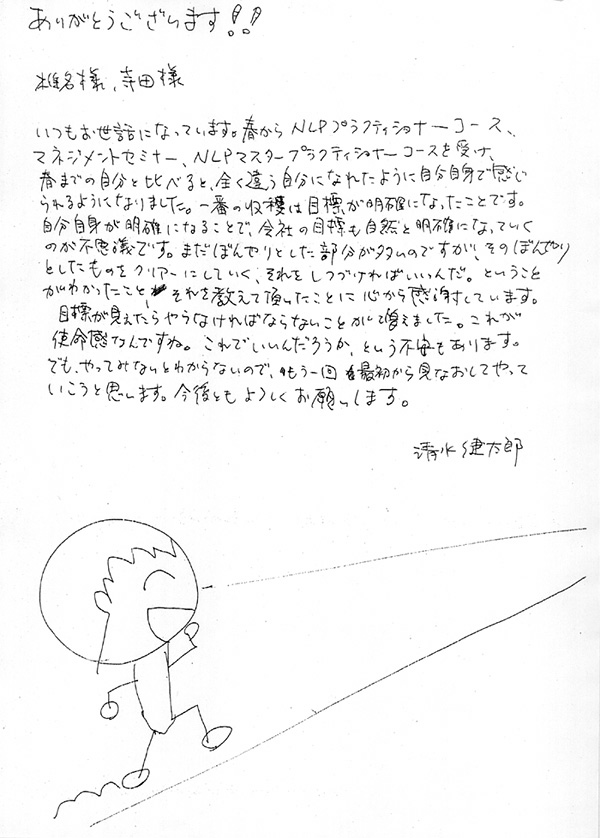 ありがとうございます!!
椎名様、寺田様
いつもお世話になっています。春からNLPプラクティショナーコース、
マネジメントセミナー、NLPマスタープラクティショナーコースを受け、
春までの自分と比べると、全く違う自分になれたように自分自身で感じ
られるようになりました。一番の収穫は目標が明確になったことです。
自分自身が明確になることで、会社の目標も自然と明確になっていく
のが不思議です。まだぼんやりとした部分が多いのですが、そのぼんやり
としたものをクリアーにしていく、それをしつづければいいんだ。ということ
がわかったこと、それを教えて頂いたことに心から感謝しています。
目標が見えたらやらなければならないことがして増えました。これが
使命感なんですね。これでいいんだろうか、という不安もあります。
でも、やってみないとわからないので、もう一回最初から見なおしてやって
いこうと思います。今後ともよろしくお願いします。
清水健太郎